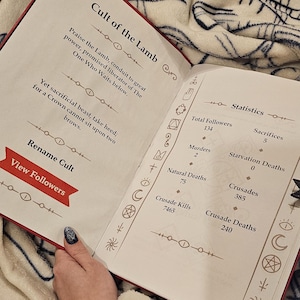 Cult of the Lamb
Praise the Lamb, conduit to great
power, promised liberator of The
One Who Waits below.
Yet sacrificial beast, take heed,
for a Crown cannot sit upon two
brows.
Rename Cult
View Followers
Statistics
Total Followers
134
Sacrifices
8
Murders
Starvation Deaths
0
Natural Deaths
75
Crusades
385
Crusade Kills
7465
Crusade Deaths
240